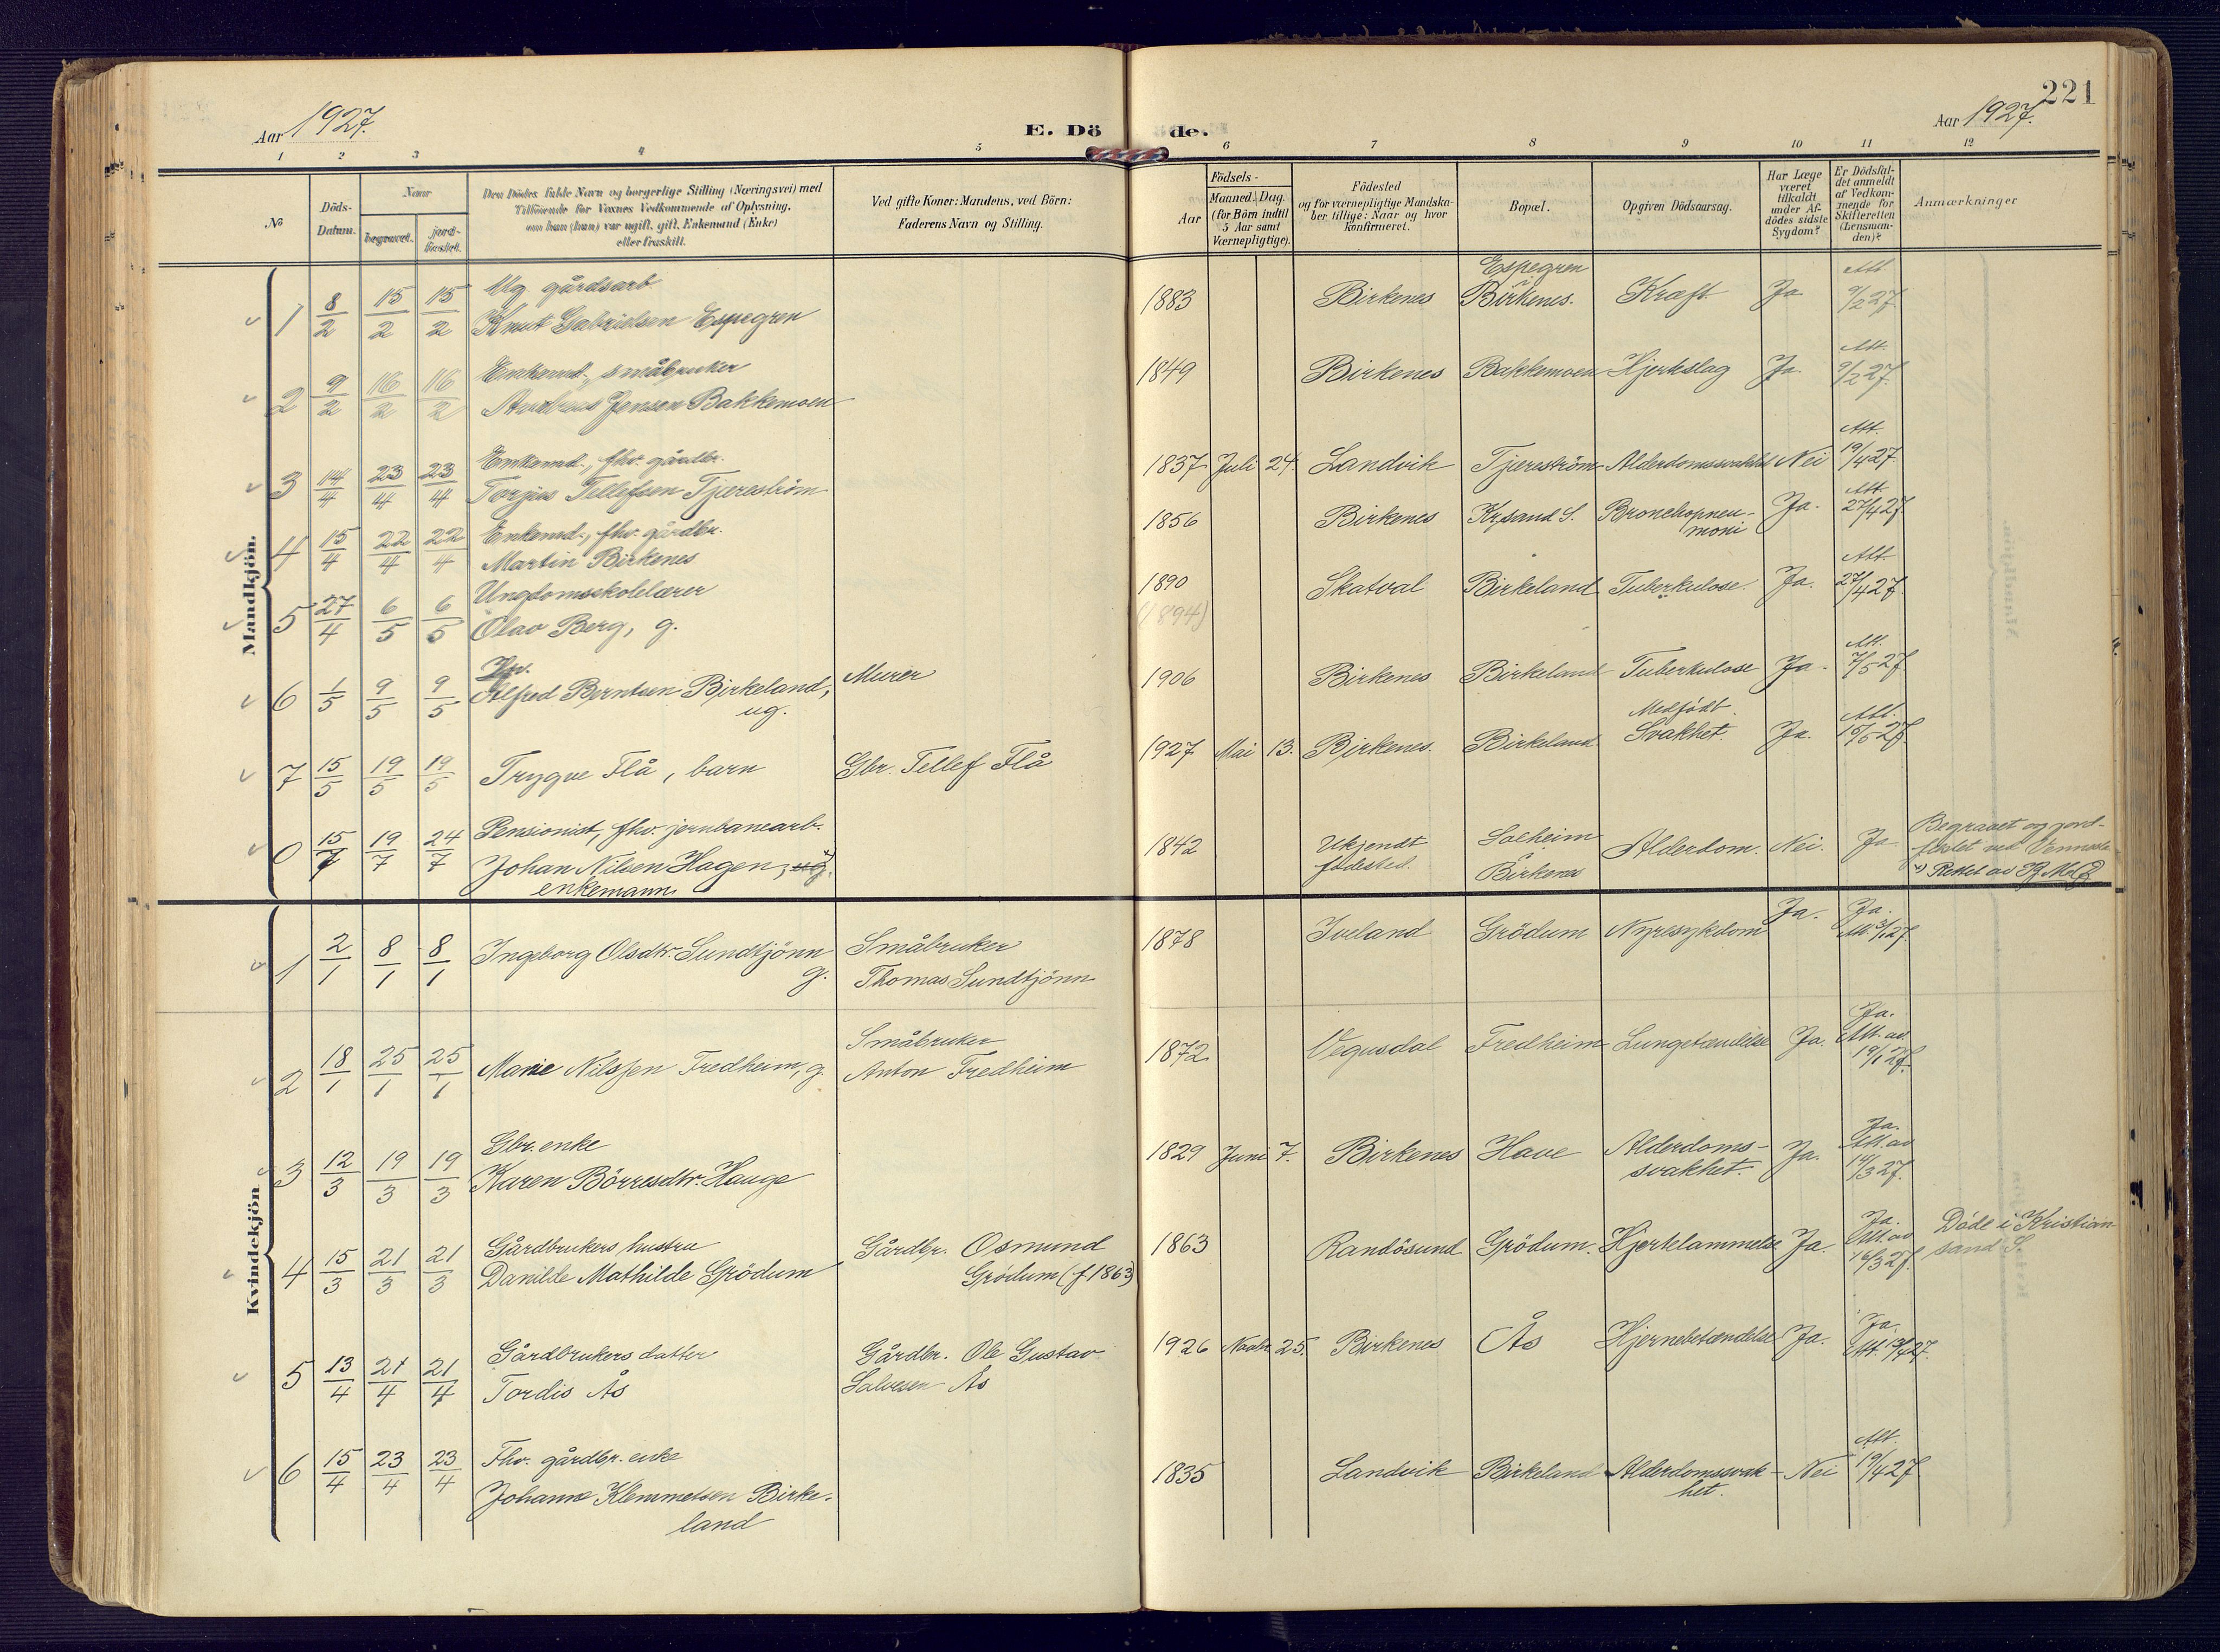 221
Aar 1927.
E. Dö de.
Aar 1927.
1 2 3 4 5 6 7 8 9 10 11 12
№
Döds-
Datum.
Naar
begravet.
jords-
fæstet.
Den Dödes fulde Navn og borgerlige Stilling (Næringsvei) med
Tilföiende for Voxnes Vedkommende af Oplysning,
om han (hun) var ugift, gift, Enkemand (Enke)
eller fraskilt.
Ved gifte Koner: Mandens, ved Börn:
Faderens Navn og Stilling.
Födsels-
Aar
Maaned. Dag.
(for Börn indtil
5 Aar samt
Værnepligtige).
Födested
og for værnepligtige Mandska-
ber tillige: Naar og hvor
konfirmeret.
Bopæl.
Opgiven Dödsaarsag.
Har Læge
været
tilkaldt
under Af-
dödes sidste
Sygdom?
Er Dödsfal-
det anmeldt
af Vedkom-
mende for
Skifteretten
(Lensman-
den)?
Anmærkninger
Mandkjön.
1 8/2 15/2 15/2 Ug gårdsarb.
Knut Gabrielsen Espegren
1883 Birkenes Espegren
Birkenes. Kræft Ja Att
9/2 27
2 9/2 16/2 16/2 Enkemd., småbruker
Jensen Bakkemoen
1849 Birkenes Bakkemoen Hjerteslag Ja. Att.
9/2 27.
3 14/4 23/4 23/4 Enkemd., fhv. gårdbr.
Torjus Tellefsen Tjæreström
1837 Juli 24. Landvik Tjæreström Alderdomssvakhet Nei Att.
19/4 27.
4 15/4 22/4 22/4 Enkemd., fhv. gårdbr.
Martin Birkenes
1856 Birkenes Krsand S. Bronchopneu-
moni Ja. Att.
27/4 27
5 27/4 6/5 6/5 Ungdomsskolelærer
Olav Berg, g.
1890
(1894) Skatval Birkeland Tuberkulose. Ja. Att.
27/4 27.
6 1/5 9/5 9/5
Alfred Berntsen Birkeland,
ug.
Murer
1906 Birkenes Birkeland Tuberkulose Ja. Att.
7/5 27.
7 15/5 19/5 19/5 Trygve Flå, barn
Gbr. Tellef Flå
1927 Mai 13. Birkenes. Birkeland. Medfödt
Svakhet. Ja. Att.
15/5 27.
0 15/7 19/7 24/7 Pensionist, fhv. jernbanearb.
Johan Nilsen Hagen, ug.
enkemann
1842 Ukjendt
födested. Solheim
Birkenes Alderdom. Nei. Ja Begravet og jord-
festet ved Vennesla
x) Rettet av
Kvindekjön
1 2/1 8/1 8/1 Ingeborg Olsdtr. Sundtjönn
g.
Småbruker
Thomas Sundtjönn
1878 Iveland Grödum Nyresykdom Ja. Ja.
Att. 3/1 27.
2 18/1 25/1 25/1 Marie Nilssen Fredheim, g.
Småbruker
Anton Fredheim
1872 Vegusdal Fredheim Lungebetændelse Ja. Ja.
Att. av
19/1 27.
3 12/3 19/3 19/3 Gbr. enke
Karen Börresdtr. Hauge
1829 Juni 7. Birkenes Have Alderdoms-
svakhet. Ja. Ja.
Att. av
14/3 27.
4 15/3 21/3 21/3 Gårdbrukers hustru
Danilde Mathilde Grödum
Gårdbr. Osmund
Grödum (f 1863)
1863 Randösund Grödum. Hjertelammelse Ja. Ja.
Att. av
16/3 27. Döde i Kristian-
sand S.
5 13/4 21/4 21/4 Gårdbrukers datter
Tordis Ås
Gårdbr. Ole Gustav
Salvesen Ås
1926 Novbr. 25. Birkenes Ås Hjernebetændelse Ja. Ja.
Att. 19/4 27.
6 15/4 23/4 23/4 Fhv. gårdbr. enke
Johanne Klemmetsen Birke-
land
1835 Landvik Birkeland Alderdomssvak-
het. Nei Att.
19/4 27